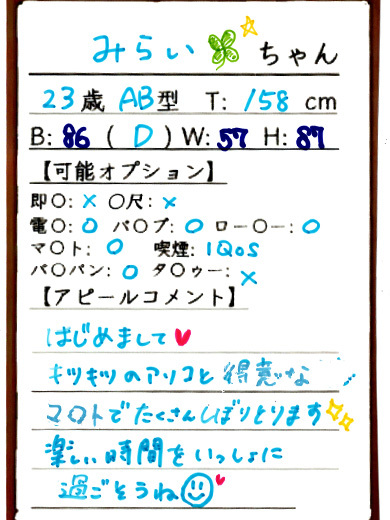 みらいちゃん
23歳 AB型 T: 158 cm
B: 86 ( D ) W: 57 H: 87
【可能オプション】
即〇: × 〇尺: ×
電〇: 〇 バ〇ブ: 〇 ロー〇ー: 〇
マ〇ト: 〇 喫煙: IQOS
パ〇パン: 〇 タ〇ゥー: ×
【アピールコメント】
はじめまして
キツキツのアソコと得意な
マ〇トでたくさんしぼりとります
楽しい時間をいっしょに
過ごそうね